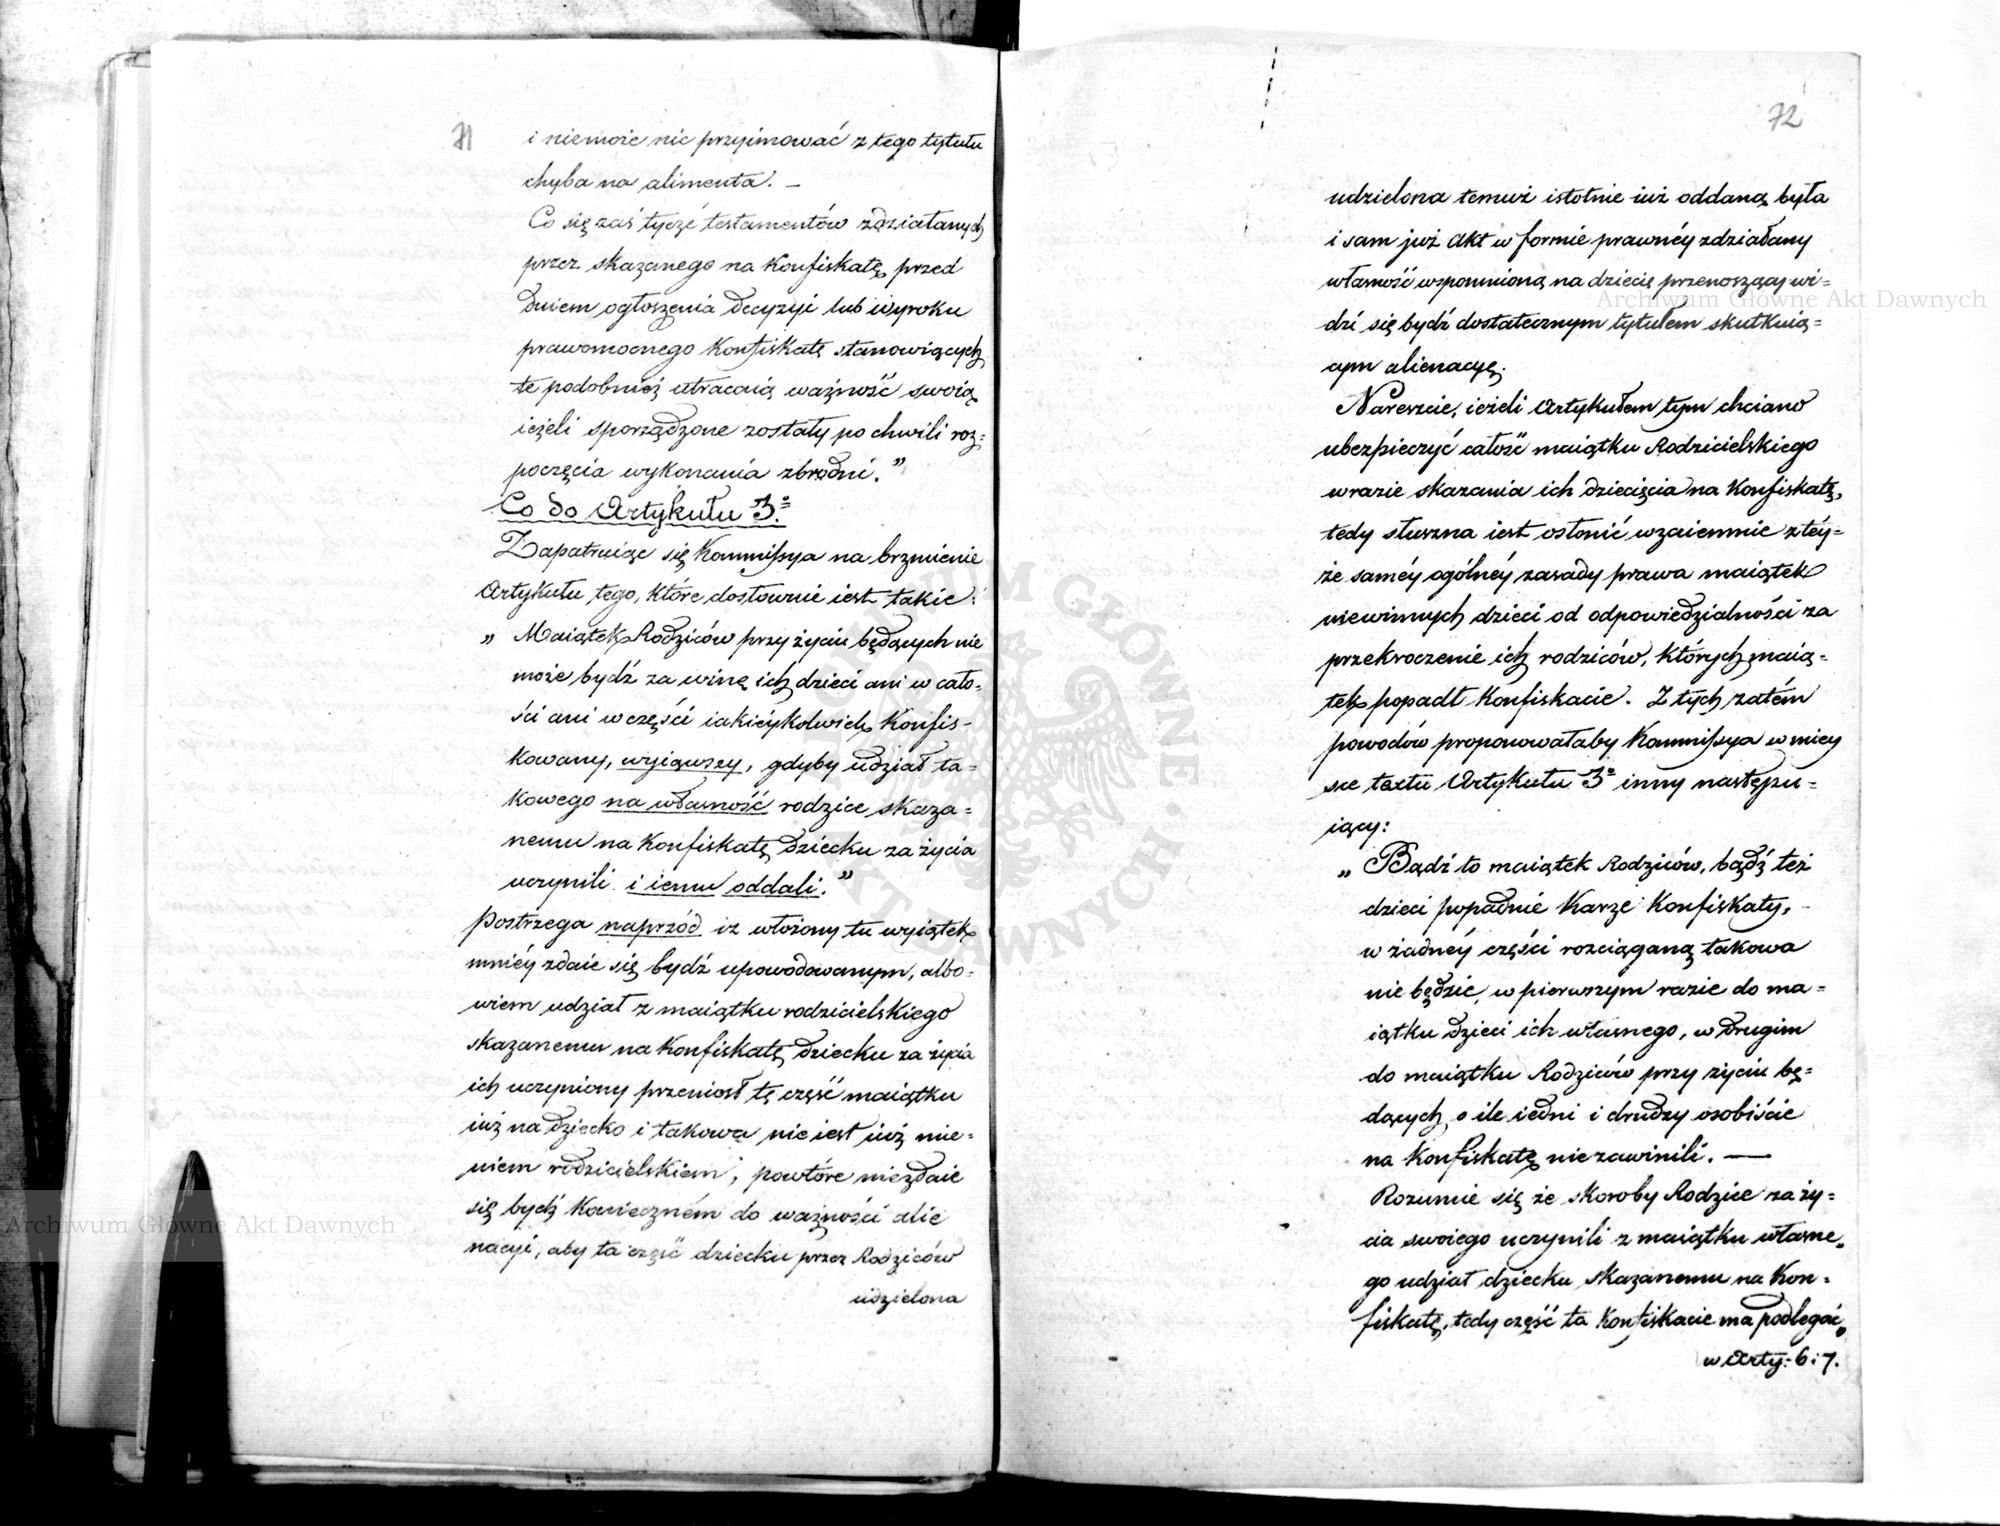 71
i niemoże nic przyimować z tego tytułu
chyba na alimenta. –
Co się zaś tyczé testamentów zdziałanych
przez skazanego na Konfiskatę przed
dniem ogłoszenia decyzyi lub wyroku
prawomocnego Konfiskatę stanowiących
te podobnież utracaią ważność swoią
ieżeli sporządzone zostały po chwili roz=
poczęcia wykonania zbrodni."
Co do Artykułu 3º
Zapatruiąc się Kommissya na brzmienie
Artykułu tego, które dosłownie iest takie:
„ Maiątek Rodziców przy życiu będących nie
może bydź za winę ich dzieci ani w cało=
ści ani w części iakiéykolwiek Konfis-
kowany, wyiąwszy, gdyby udział ta=
kowego na własność rodzice skaza=
nemu na Konfiskatę dziecku za życia
uczynili i iemu oddali."
Postrzega naprzód iż włożony tu wyiątek
mniéy zdaie się bydź upowodowanym, albo=
wiem udział z maiątku rodzicielskiego
skazanemu na Konfiskatę dziecku za życia
ich uczyniony przeniosł tę część maiątku
iuż na dziecko i takowa nie iest iuż mie=
niem rodzicielskiem; powtóre niezdaie
się bydź Konieczném do ważności alie
nacyi, aby ta część dziecku przez Rodziców
udzielona
72
udzielona temuż istotnie iuż oddaną była
i sam już akt w formie prawnéy zdziałany
własność wspomnioną na dziecię przenoszący wi=
dzi się bydź dostatecznym tytułem skutkuią=
cym alienacyę.
Nareszcie, ieżeli Artykułem tym chciano
ubezpieczyć całość maiątku Rodzicielskiego
w razie skazania ich dziecięcia na Konfiskatę,
tedy słuszna iest osłonić wzaiemnie z téy=
że saméy ogólnéy zasady prawa maiątek
niewinnych dzieci od odpowiedzialności za
przekroczenie ich rodziców, których maią=
tek popadł Konfiskacie. Z tych zatém
powodów proponowałaby Kommissya w miey
sce textu Artykułu 3º inny następu=
iący:
„ Bądź to maiątek Rodziców, bądź też
dzieci popadnie Karze Konfiskaty,
w żadnéy części rozciąganą takowa
nie będzie, w pierwszym razie do ma=
iątku dzieci ich własnego, w drugim
do maiątku Rodziców przy życiu bę=
dących, o ile iedni i drudzy osobiście
na Konfiskatę nie zawinili. —
Rozumie się że skoroby Rodzice za ży=
cia swoiego uczynili z maiątku własne=
go udział dziecku skazanemu na Kon=
fiskatę, tedy część ta Konfiskacie ma podlegać„
w Arty: 6 i 7.
Archiwum Główne Akt Dawnych
Archiwum Główne Akt Dawnych
ARCHIWUM GŁÓWNE AKT DAWNYCH